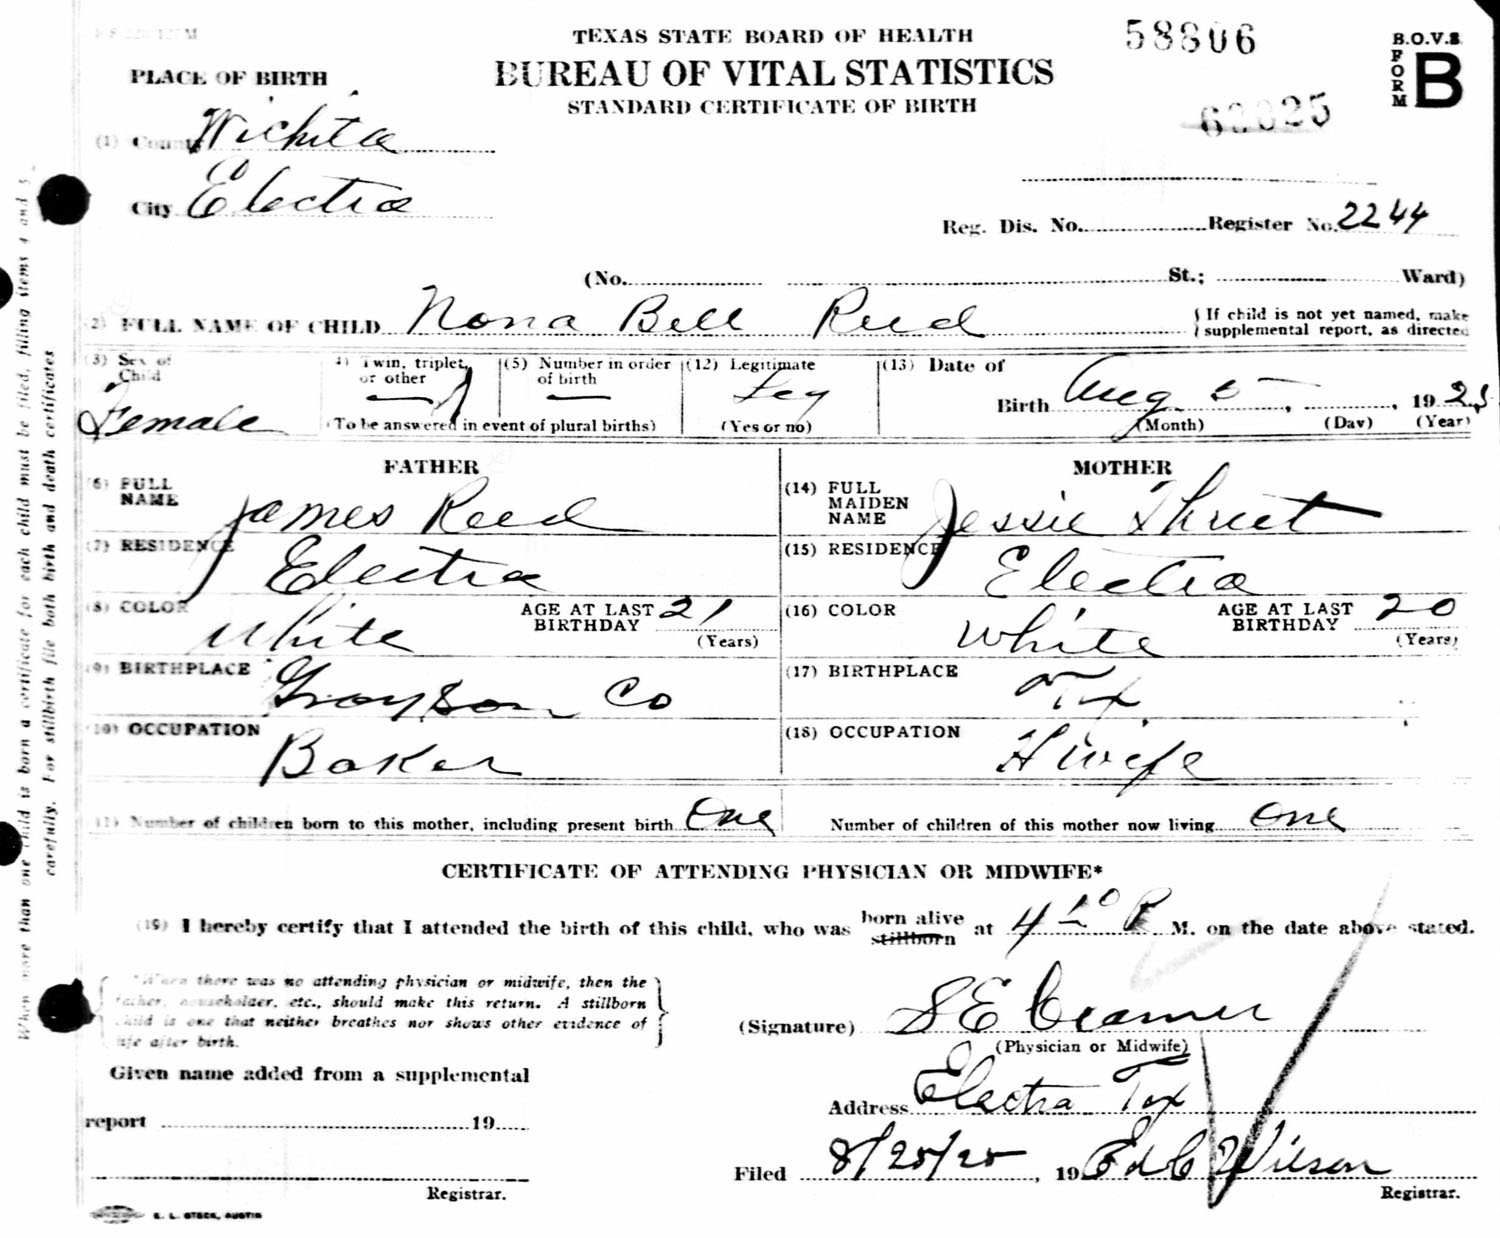 TEXAS STATE BOARD OF HEALTH
BUREAU OF VITAL STATISTICS
STANDARD CERTIFICATE OF BIRTH
58806
B.O.V.S
FORM B
PLACE OF BIRTH
(1) County Wichita
City Electra
Reg. Dis. No. Register No. 2244
(No. St.; Ward)
(2) FULL NAME OF CHILD Nona Bell Reed
(If child is not yet named, make
supplemental report, as directed
(3) Sex of Child Female
4) Twin, triplet, or other —
(5) Number in order of birth —
(To be answered in event of plural births)
(12) Legitimate Leg
(Yes or no)
(13) Date of Birth Aug 5 —, 1925
(Month) (Day) (Year)
FATHER
(6) FULL NAME James Reed
(7) RESIDENCE Electra
(8) COLOR White AGE AT LAST BIRTHDAY 21 (Years)
(9) BIRTHPLACE Grayson Co
(10) OCCUPATION Baker
MOTHER
(14) FULL MAIDEN NAME Jessie Threet
(15) RESIDENCE Electra
(16) COLOR White AGE AT LAST BIRTHDAY 20 (Years)
(17) BIRTHPLACE Tex
(18) OCCUPATION H wife
(11) Number of children born to this mother, including present birth One
Number of children of this mother now living One
CERTIFICATE OF ATTENDING PHYSICIAN OR MIDWIFE*
(19) I hereby certify that I attended the birth of this child, who was born alive stillborn at 4 10 P M. on the date above stated.
*When there was no attending physician or midwife, then the
father, householder, etc., should make this return. A stillborn
child is one that neither breathes nor shows other evidence of
life after birth.
(Signature) S E Cramer
(Physician or Midwife)
Given name added from a supplemental
report 19
Registrar.
Address Electra Tex
Filed 8/25/25, 19 Ed C Wilson
Registrar.
E. L. STECK, AUSTIN
When more than one child is born a certificate for each child must be filed, filling items 4 and 5
carefully. For stillbirth file both birth and death certificates